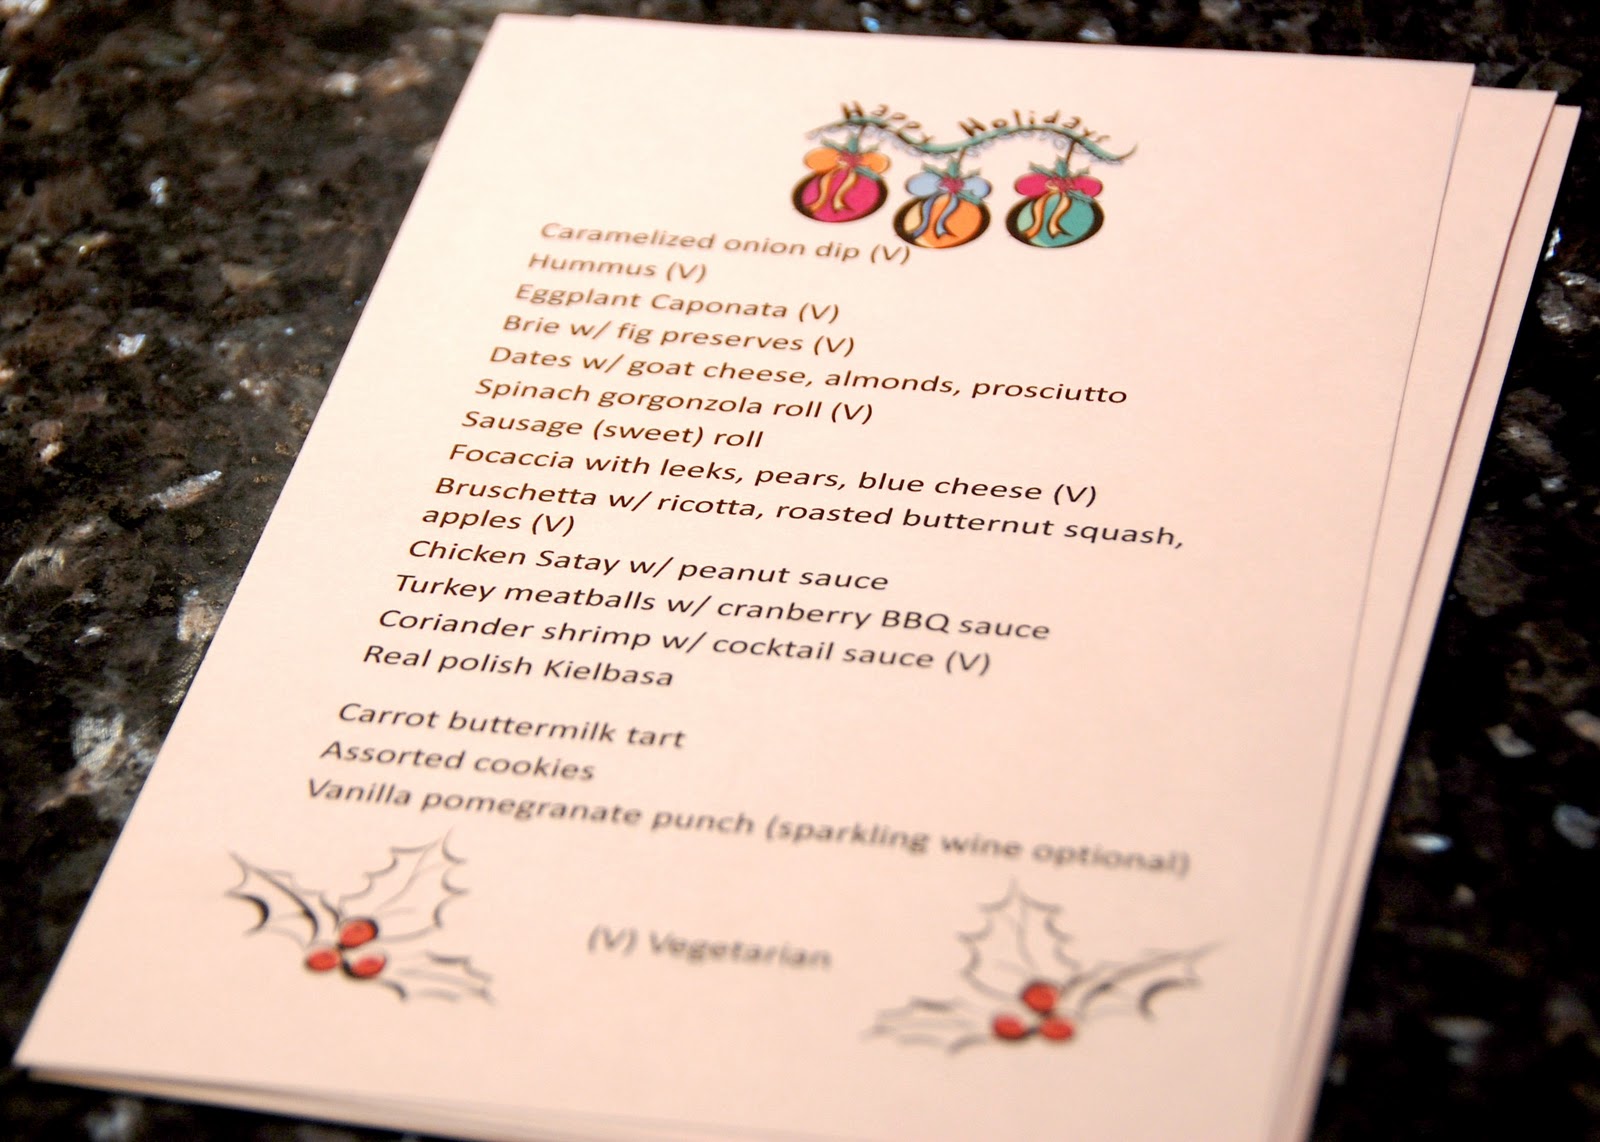 Happy Holidays
Caramelized onion dip (V)
Hummus (V)
Eggplant Caponata (V)
Brie w/ fig preserves (V)
Dates w/ goat cheese, almonds, prosciutto
Spinach gorgonzola roll (V)
Sausage (sweet) roll
Focaccia with leeks, pears, blue cheese (V)
Bruschetta w/ ricotta, roasted butternut squash,
apples (V)
Chicken Satay w/ peanut sauce
Turkey meatballs w/ cranberry BBQ sauce
Coriander shrimp w/ cocktail sauce (V)
Real polish Kielbasa
Carrot buttermilk tart
Assorted cookies
Vanilla pomegranate punch (sparkling wine optional)
(V) Vegetarian